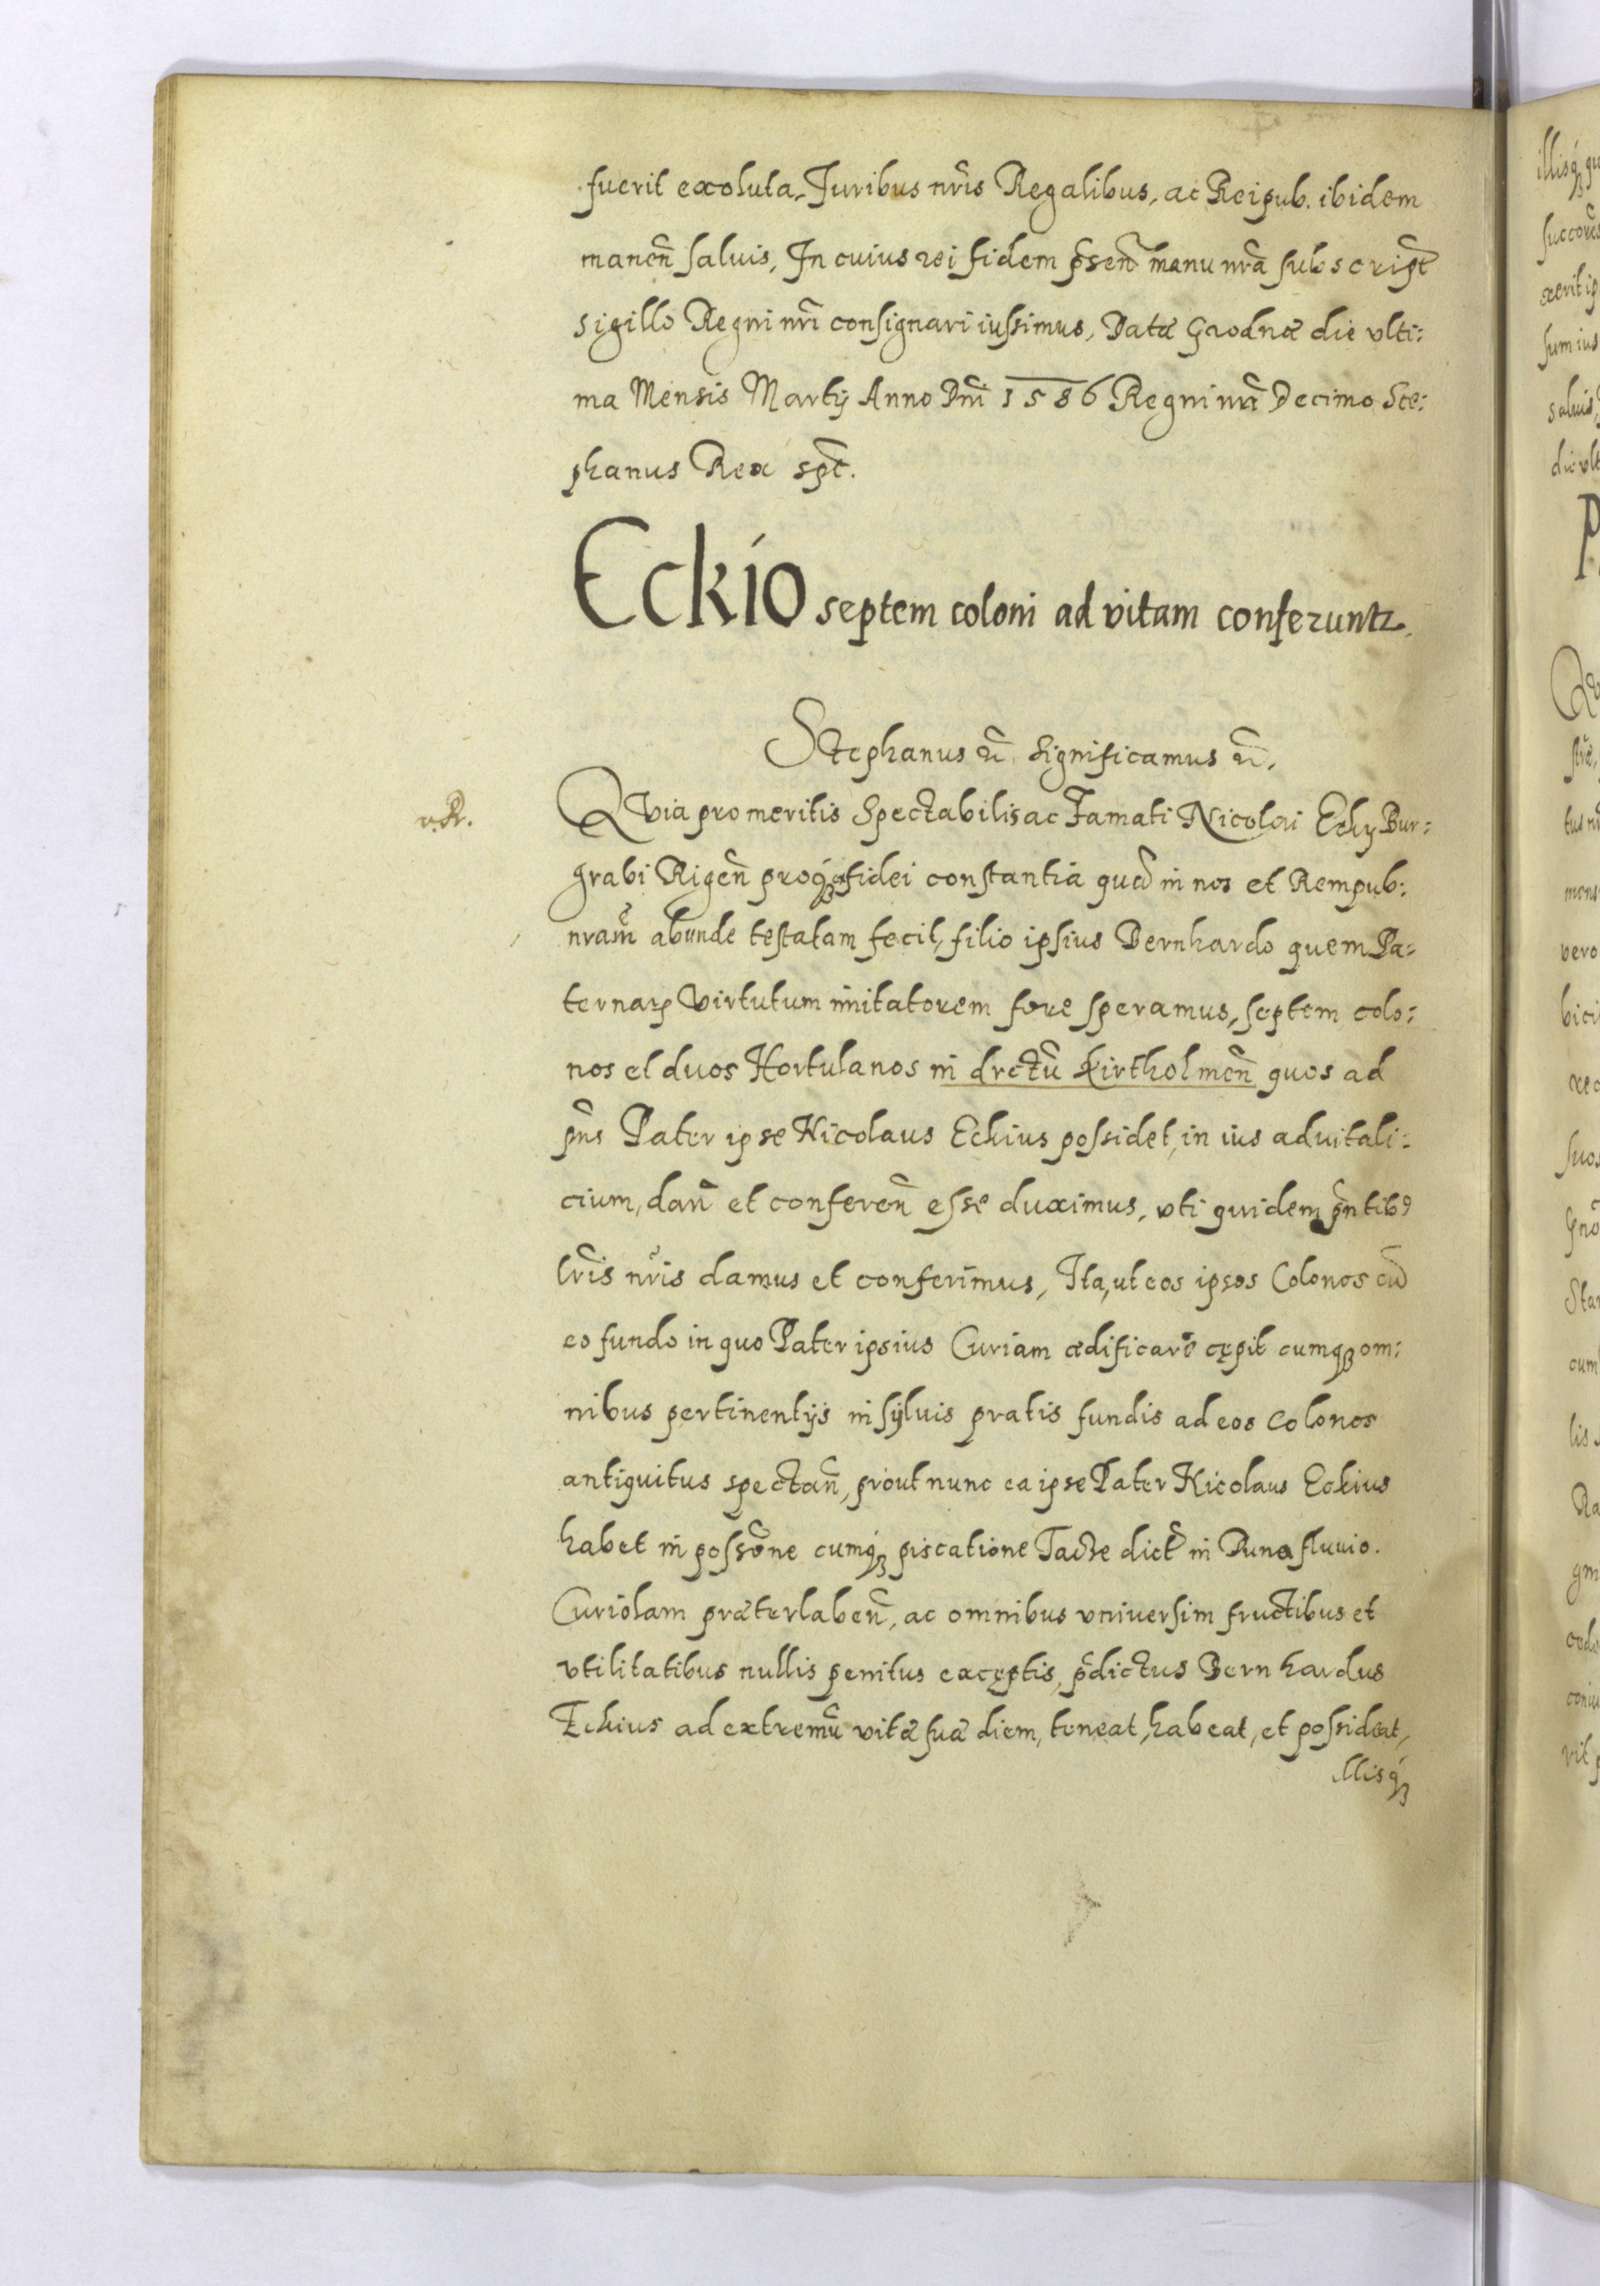 fuerit exoluta, Juribus nr̃is Regalibus, ac Reipub. ibidem
manen̄ saluis, In cuius rei fidem p̃sen̄ manu nr̃a subscript̃
sigillo Regni nr̃i consignari iussimus, Datæ Grodnæ die vlti:
ma Mensis Martij Anno Dñi 1586 Regni nr̃i Decimo Ste:
phanus Rex spt̃.
Eckio septem coloni ad vitam conferuntr.
Stephanus ꝛc̃ significamus ꝛc̃.
v. R.
QVia pro meritis Spectabilis ac Famati Nicolai Ecky Bur:
grabi Rigen̄ proq́ꝫ fidei constantia quã in nos et Rempub:
nram̃ abunde testatam fecit, filio ipsius Bernhardo quem Pa:
ternarꝝ Virtutum imitatorem fore speramus, septem colo:
nos et duos Hortulanos in drctũ Kirtholmen̄ quos ad
p̃ns Pater ipse Nicolaus Eckius possidet, in ius aduitali:
cium, dan̄ et conferen̄ esse duximus, vti quidem p̃ntibꝰ
lr̃is nr̃is damus et conferimus, Ita, ut eos ipsos Colonos cũ
eo fundo in quo Pater ipsius Curiam ædificare cępit cumqꝫ om:
nibus pertinentijs in syluis pratis fundis ad eos Colonos
antiquitus spectan̄, prout nunc ea ipse Pater Nicolaus Eckius
habet in possõne cumq́ꝫ piscatione Tacze dict̃ in Duna fluuio.
Curiolam præterlaben̄, ac omnibus vniuersim fructibus et
vtilitatibus nullis penitus excęptis, p̃dictus Bernhardus
Eckius ad extremũ vitæ suæ diem, teneat, habeat, et possideat,
illisq́ꝫ